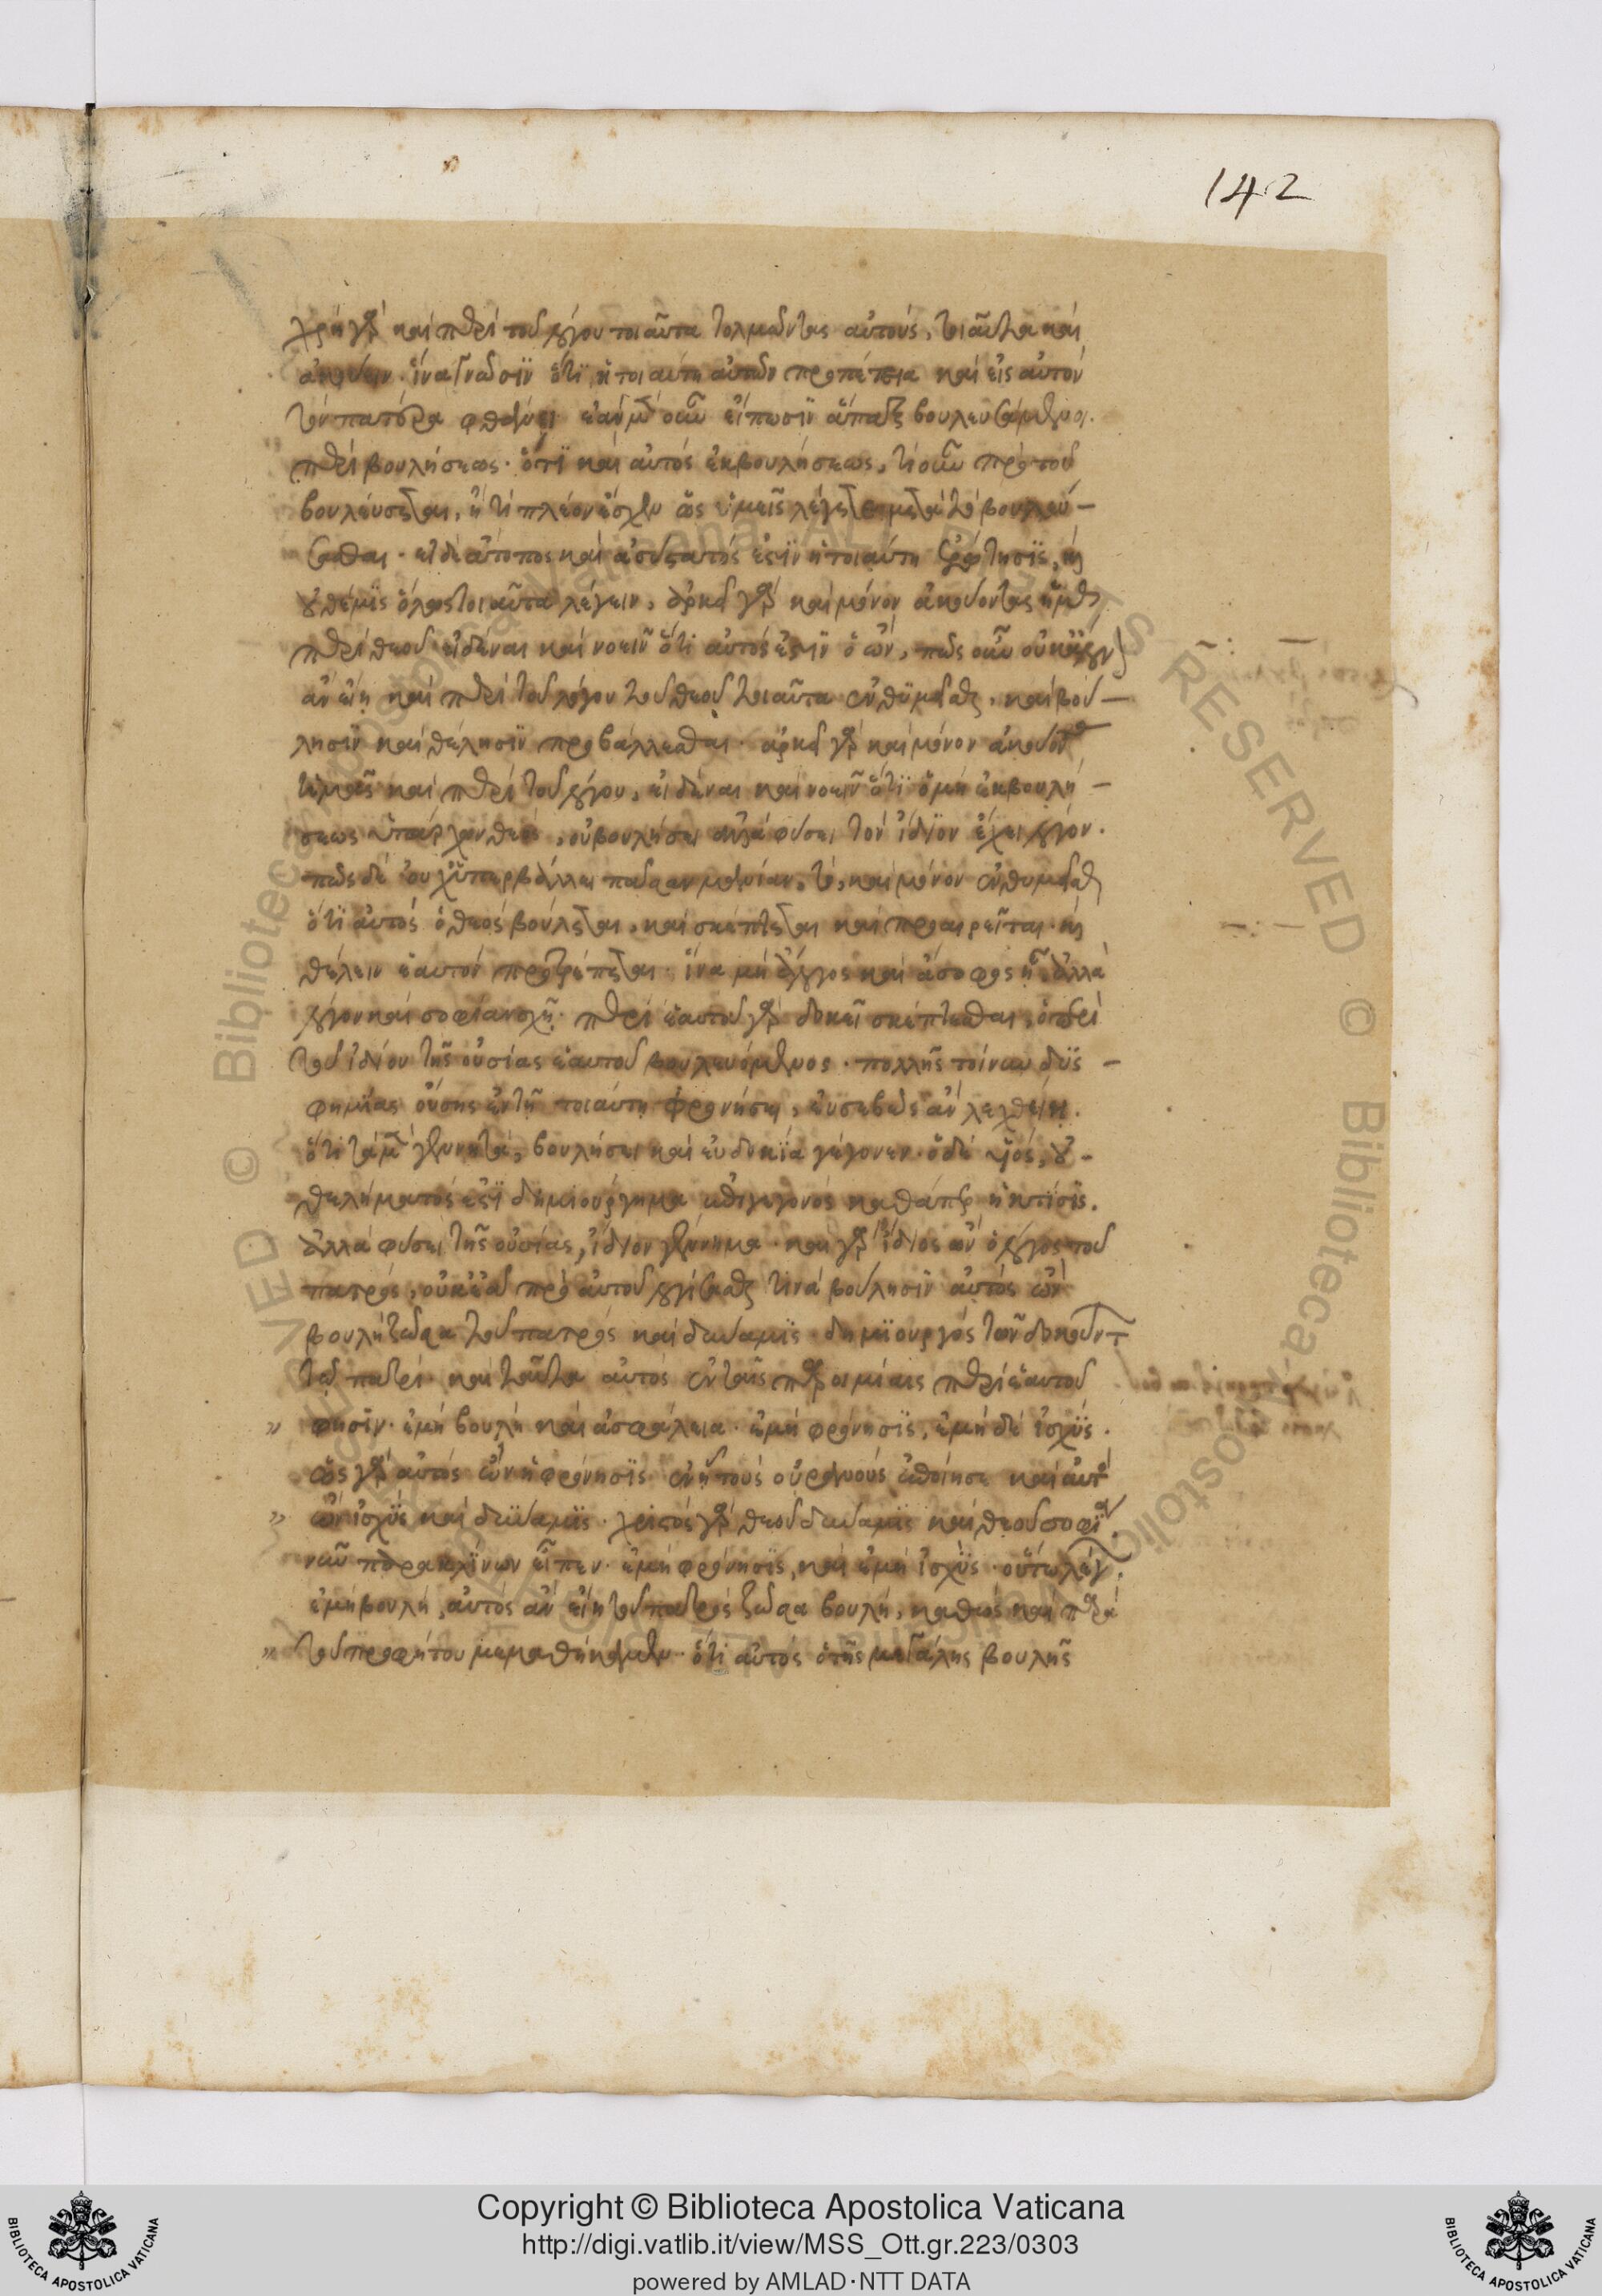 142
χρὴ γὰρ καὶ περὶ τοῦ λόγου τοιαῦτα τολμῶντας αὐτοὺς, τοιαῦτα καὶ
ἀκούειν· ἵνα γνῶσιν ὅτι ἡ τοιαύτη αὐτῶν προπέτεια καὶ εἰς αὐτὸν
τὸν πατέρα φθάνει· ἐὰν μὲν οὖν εἴπωσιν ἅπαξ βουλευσάμενοι
περὶ βουλήσεως· ὅτι καὶ αὐτὸς ἐκ βουλήσεως, τί οὖν πρὸ τοῦ
βουλεύσεται, ἢ τί πλέον ἔσχεν ὡς ὑμεῖς λέγετε μετὰ τὸ βουλεύ-
σασθαι· εἰ δὲ ἄτοπος καὶ ἀσύστατός ἐστιν ἡ τοιαύτη ἐρώτησις, καὶ
οὐ θέμις ὅλως τοιαῦτα λέγειν, ἀρκεῖ γὰρ καὶ μόνον ἀκούοντας ἡμᾶς
περὶ θεοῦ εἰδέναι καὶ νοεῖν ὅτι αὐτός ἐστιν ὁ ὤν, πῶς οὖν οὐκ ἄλογον
ἂν εἴη καὶ περὶ τοῦ λόγου τοῦ θεοῦ τοιαῦτα ἐνθυμεῖσθαι, καὶ βού-
λησιν καὶ θέλησιν προβάλλεσθαι· ἀρκεῖ γὰρ καὶ μόνον ἀκούοντας
ἡμᾶς καὶ περὶ τοῦ λόγου, εἰδέναι καὶ νοεῖν ὅτι ὁ μὴ ἐκ βουλή-
σεως ὑπάρχων θεὸς, οὐ βουλήσει ἀλλὰ φύσει τὸν ἴδιον ἔχει λόγον.
πῶς δὲ οὐχ ὑπερβάλλει πᾶσαν μανίαν, τὸ, καὶ μόνον ἐνθυμεῖσθαι
ὅτι αὐτὸς ὁ θεὸς βούλεται, καὶ σκέπτεται καὶ προαιρεῖται· καὶ
θέλειν ἑαυτὸν προτρέπεται· ἵνα μὴ ἄλογος καὶ ἄσοφος ᾖ. ἀλλὰ
λόγον καὶ σοφίαν σχῇ· περὶ ἑαυτοῦ γὰρ δοκεῖ σκέπτεσθαι, ὁ περὶ
τοῦ ἰδίου τῆς οὐσίας ἑαυτοῦ βουλευόμενος· πολλῆς τοίνυν δυσ-
φημίας οὔσης ἐν τῇ τοιαύτῃ φρονήσει, εὐσεβῶς ἂν λεχθείη.
ὅτι τὰ μὲν γενητὰ, βουλήσει καὶ εὐδοκίᾳ γέγονεν· ὁ δὲ υἱὸς, οὐ
θελήματός ἐστι δημιούργημα ἐπιγεγονὸς καθάπερ ἡ κτίσις.
ἀλλὰ φύσει τῆς οὐσίας, ἴδιον γέννημα· καὶ γὰρ ἴδιος ὢν ὁ λόγος τοῦ
πατρὸς, οὐκ ἐᾷ πρὸ αὐτοῦ λογίσασθαι τινὰ βούλησιν αὐτὸς ὢν
βουλὴ ζῶσα τοῦ πατρὸς καὶ δύναμις· δημιουργὸς τῶν δοκούντων
τῷ πατρί· καὶ ταῦτα αὐτὸς ἐν ταῖς παροιμίαις περὶ ἑαυτοῦ
» φησὶν· ἐμὴ βουλὴ καὶ ἀσφάλεια· ἐμὴ φρόνησις, ἐμὴ δὲ ἰσχύς.
ὡς γὰρ αὐτὸς ὢν ἡ φρόνησις ἐν ᾗ τοὺς οὐρανοὺς ἐποίησε καὶ αὐτὸς
» ὢν ἰσχὺς καὶ δύναμις· χριστὸς γὰρ θεοῦ δύναμις καὶ θεοῦ σοφία.
νῦν παρακλίνων εἶπεν· ἐμὴ φρόνησις, καὶ ἐμὴ ἰσχὺς· οὕτω λέγων.
ἐμὴ βουλὴ, αὐτὸς ἂν εἴη τοῦ πατρὸς ζῶσα βουλὴ, καθὼς καὶ παρὰ
» τοῦ προφήτου μεμαθήκαμεν· ὅτι αὐτὸς ὁ τῆς μεγάλης βουλῆς
Copyright © Biblioteca Apostolica Vaticana
http://digi.vatlib.it/view/MSS_Ott.gr.223/0303
powered by AMLAD·NTT DATA
BIBLIOTECA APOSTOLICA VATICANA
BIBLIOTECA APOSTOLICA VATICANA